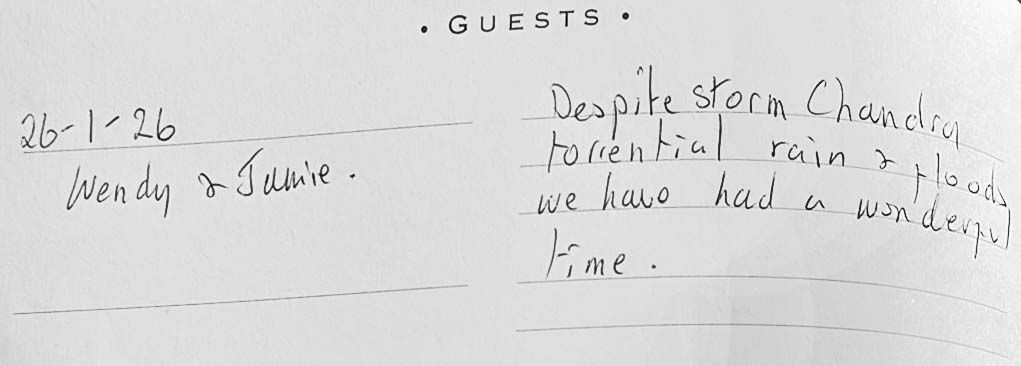 • GUESTS •
26-1-26
Wendy & Jamie.
Despite storm Chandra
torrential rain & floods
we have had a wonderful
time.